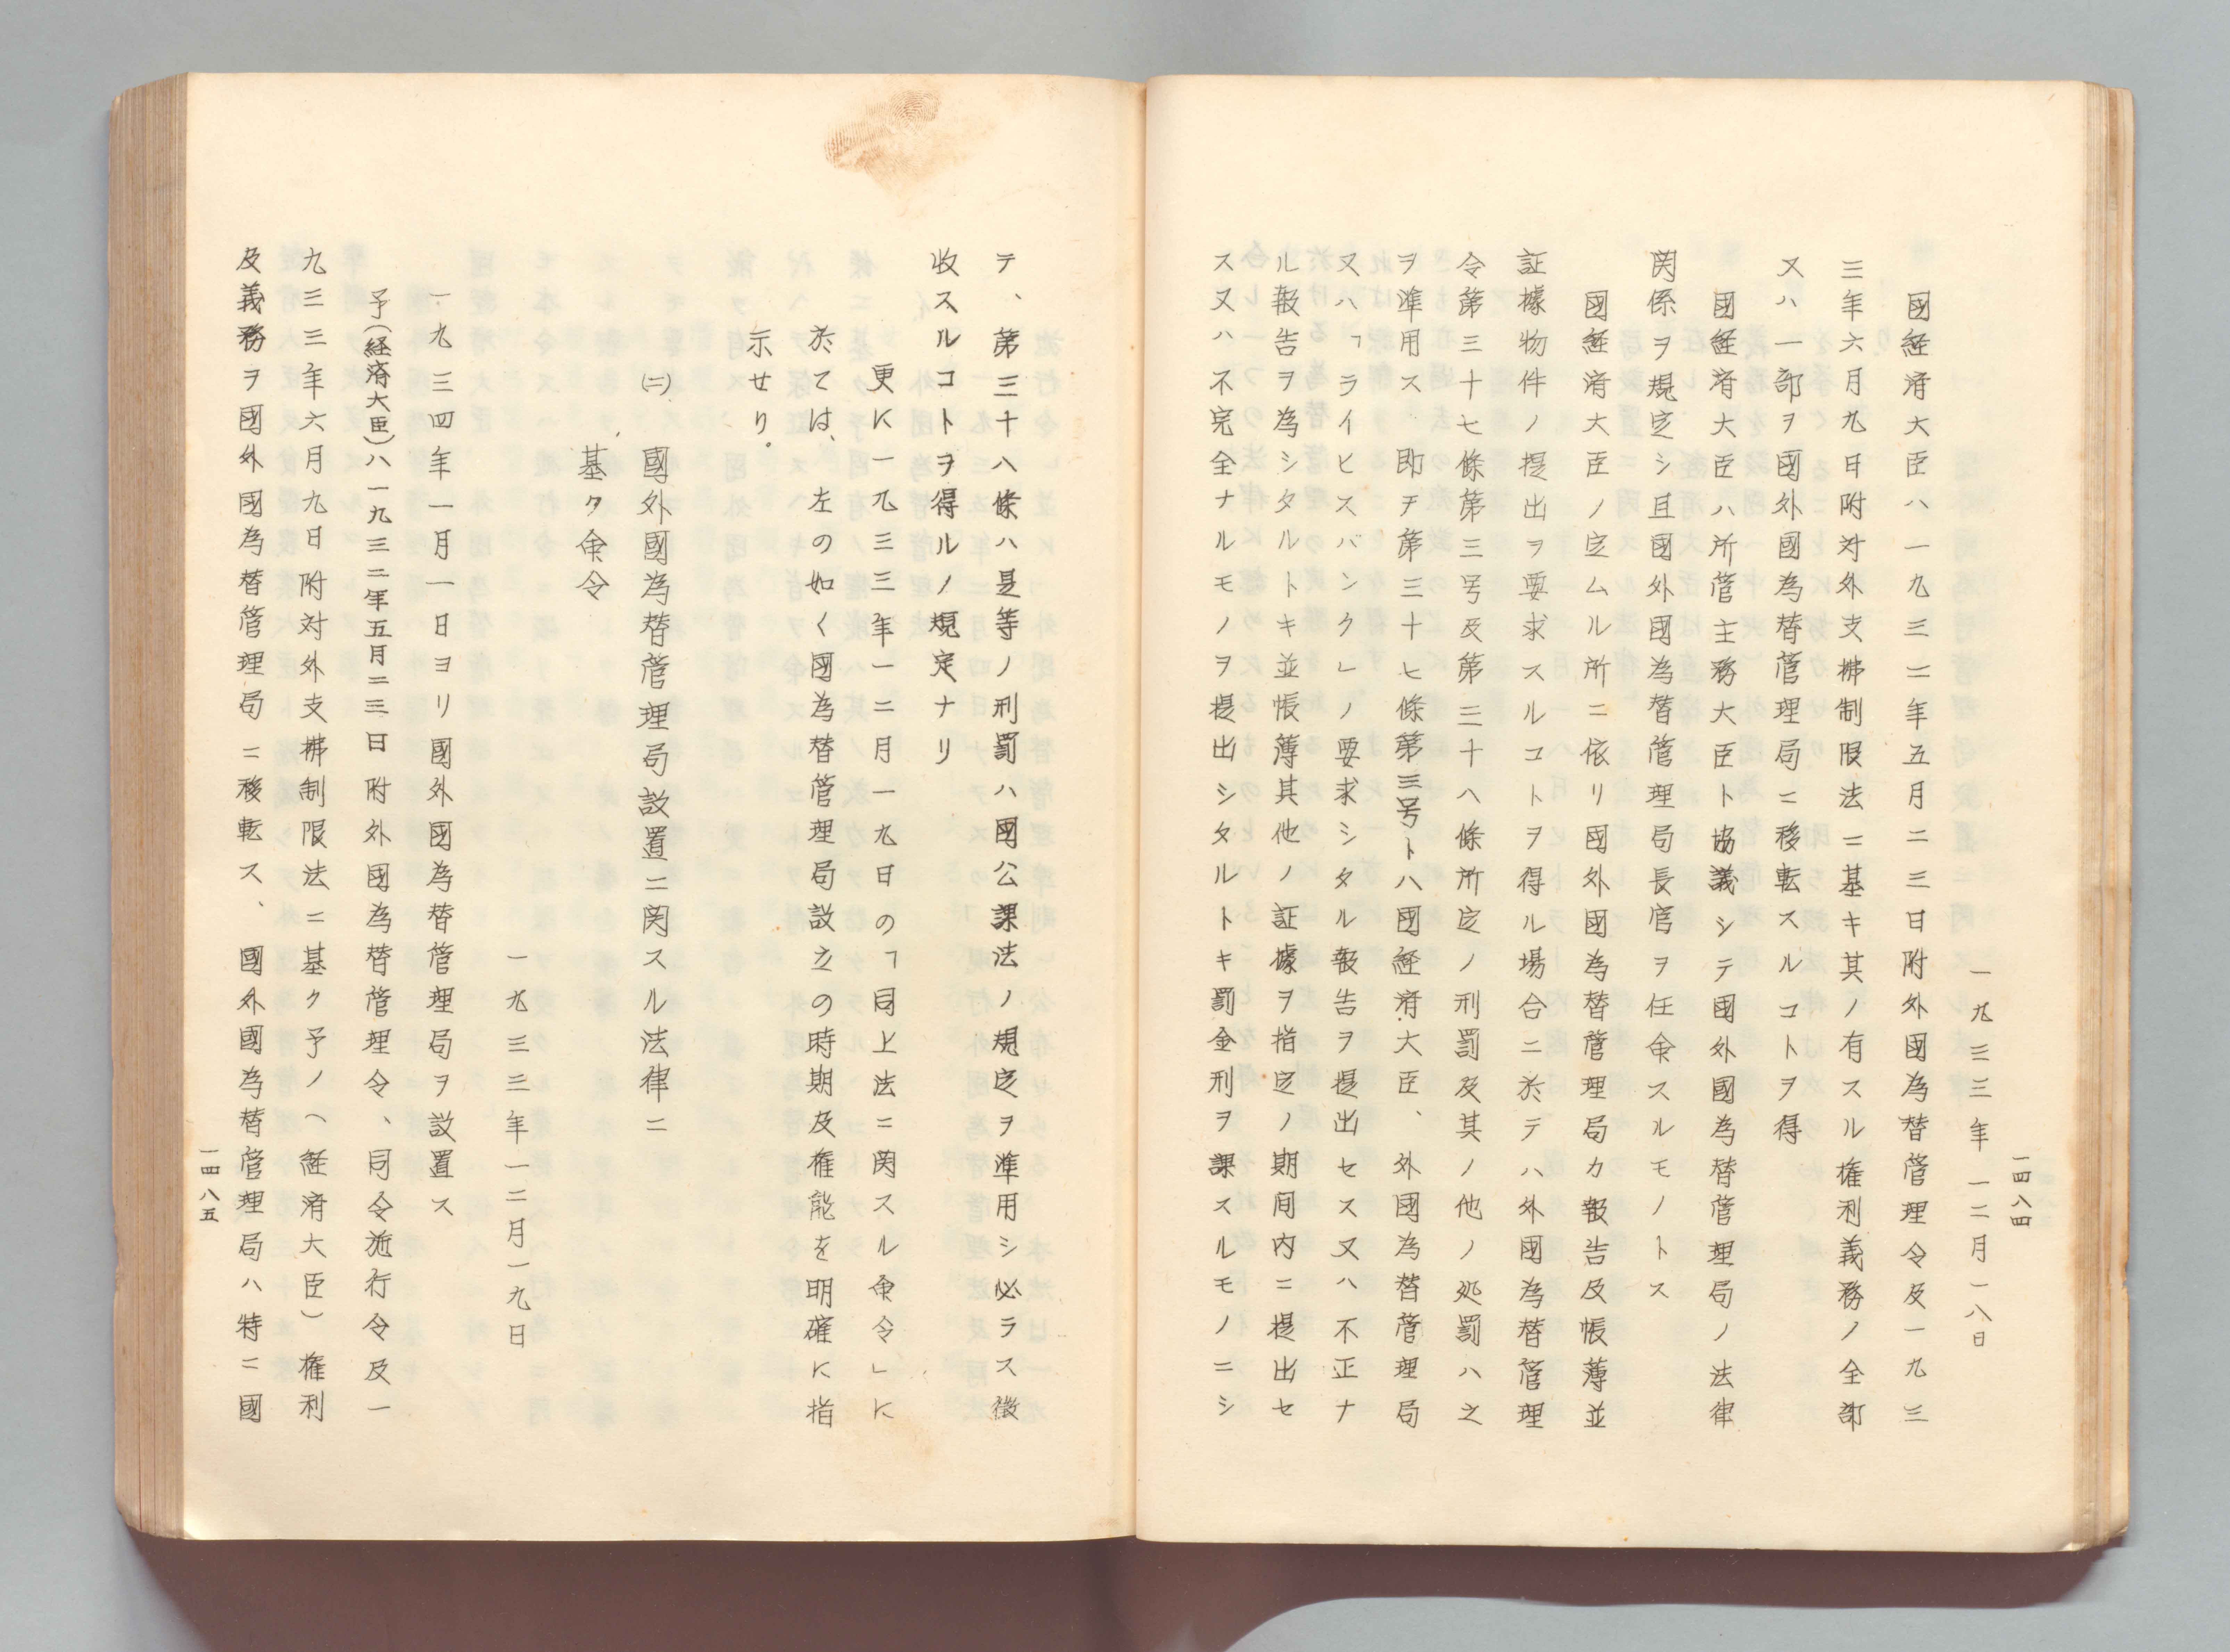 一四八四
一九三三年一二月一八日
國経済大臣ハ一九三二年五月二三日附外國為替管理令及一九三
三年六月九日附対外支拂制限法ニ基キ其ノ有スル権利義務ノ全部
又ハ一部ヲ國外國為替管理局ニ移転スルコトヲ得
國経済大臣ハ所管主務大臣ト協議シテ國外國為替管理局ノ法律
関係ヲ規定シ且國外國為替管理局長官ヲ任命スルモノトス
國経済大臣ノ定ムル所ニ依リ國外國為替管理局カ報告及帳薄並
証據物件ノ提出ヲ要求スルコトヲ得ル場合ニ於テハ外國為替管理
令第三十七條第三号及第三十八條所定ノ刑罰及其ノ他ノ処罰ハ之
ヲ準用ス 即チ第三十七條第三号トハ國経済大臣、外國為替管理局
又ハ「ライヒスバンク」ノ要求シタル報告ヲ提出セス又ハ不正ナ
ル報告ヲ為シタルトキ並帳薄其他ノ証據ヲ指定ノ期间内ニ提出セ
ス又ハ不完全ナルモノヲ提出シタルトキ罰金刑ヲ課スルモノニシ
テ、第三十八條ハ是等ノ刑罰ハ國公課法ノ規定ヲ準用シ必ラス徴
收スルコトヲ得ルノ規定ナリ
更に一九三三年一二月一九日の「同上法ニ関スル命令」に
於ては、左の如く國為替管理局設立の時期及権能を明確に指
示せり。
㈡ 國外國為替管理局設置ニ関スル法律ニ
基ク命令
一九三三年一二月一九日
一九三四年一月一日ヨリ國外國為替管理局ヲ設置ス
予(経済大臣)ハ一九三二年五月二三日附外國為替管理令、同令施行令及一
九三三年六月九日附対外支拂制限法ニ基ク予ノ(経済大臣)権利
及義務ヲ國外國為替管理局ニ移転ス、國外國為替管理局ハ特ニ國
一四八五